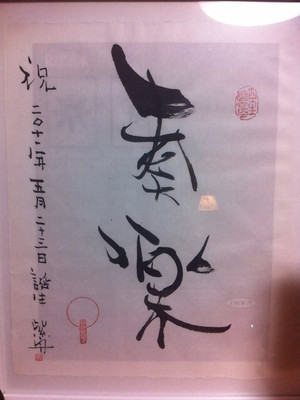 奏楽
祝 二〇十二年 五月二十三日 誕生 紫舟